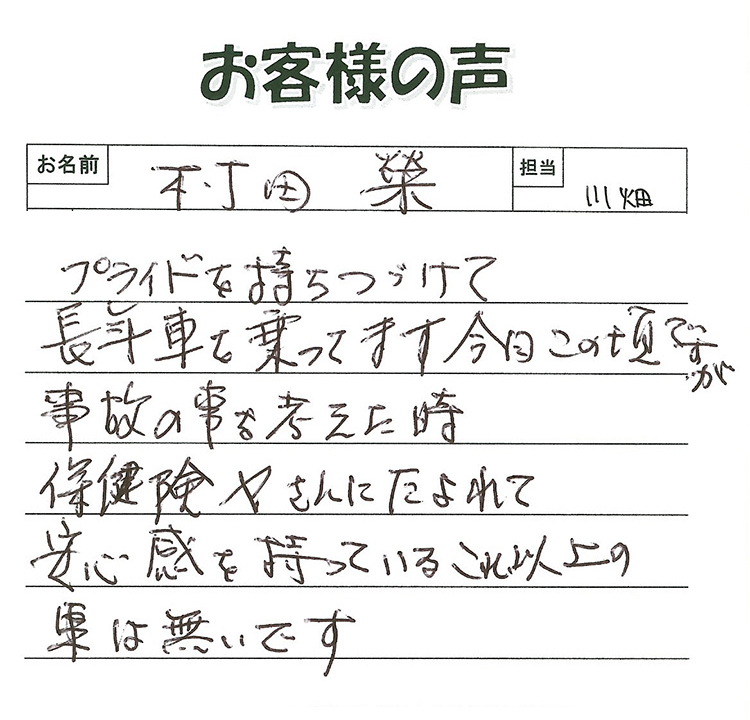 お客様の声
お名前 村田 榮 担当 川畑
プライドを持ちつづけて
長年車を乗ってます今日この頃ですが
事故の事を考えた時
保健険やさんにたよれて
安心感を持っているこれ以上の
事は無いです